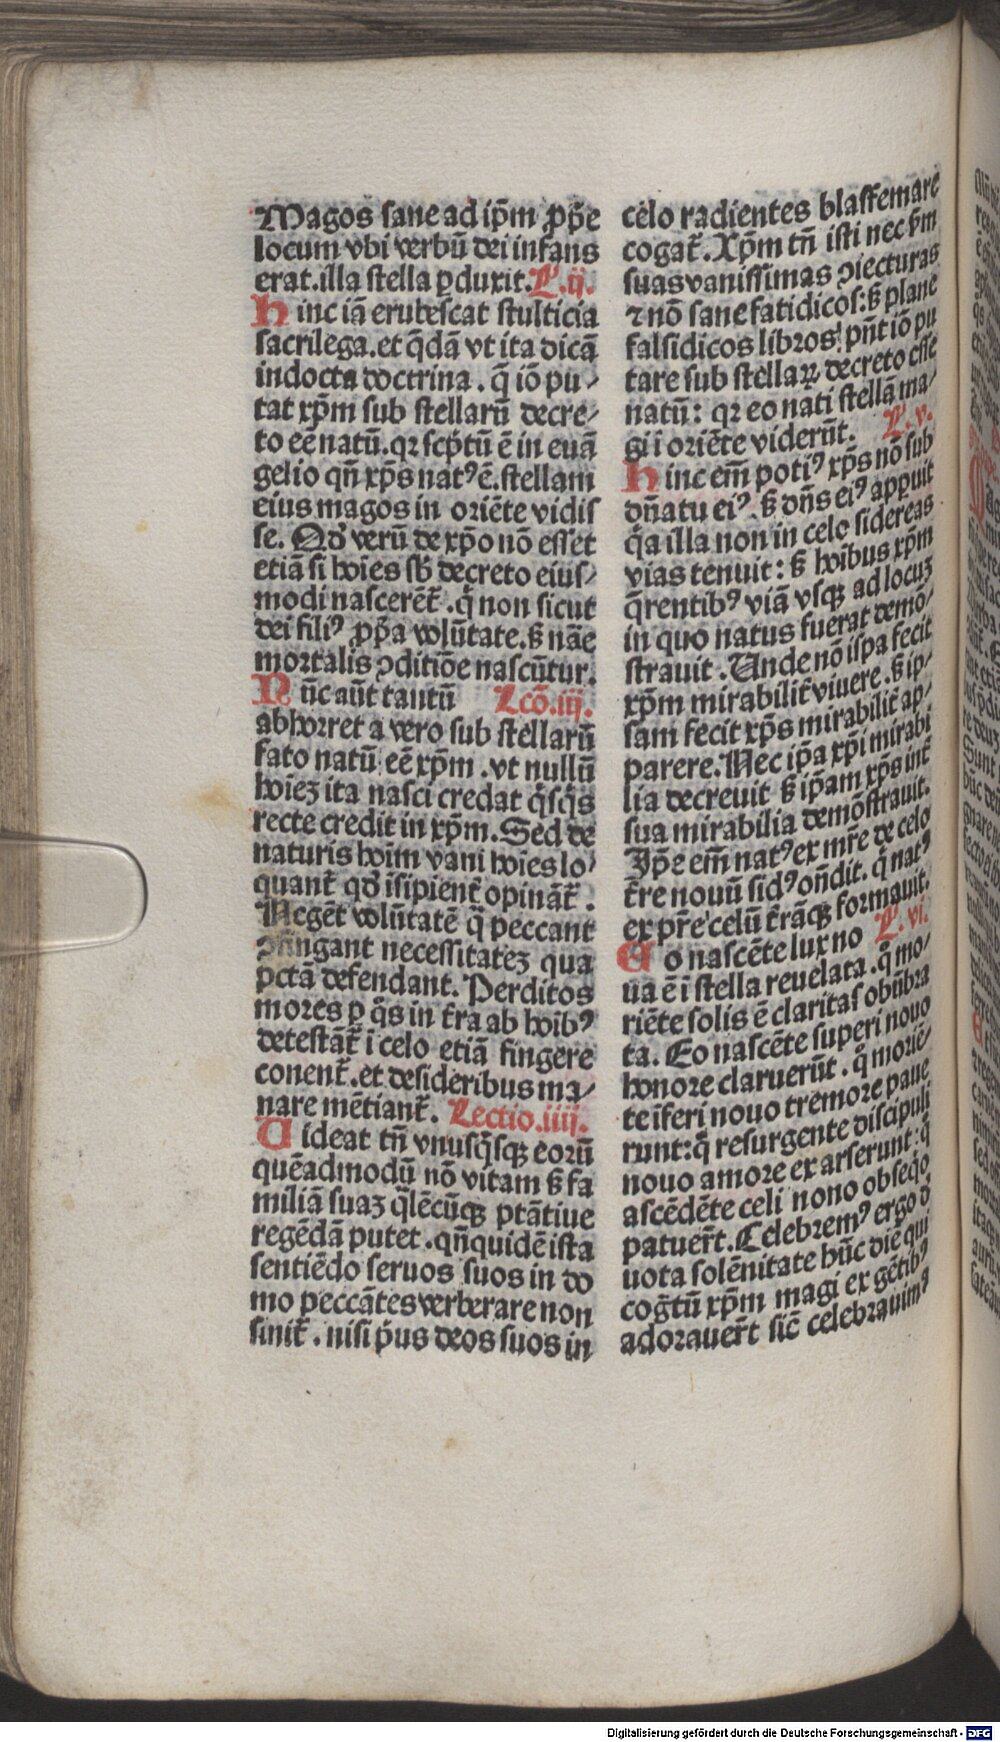 Magos sane ad ip̄m ꝓp̄e
locum vbi verbū dei infans
erat.illa stella ꝑduxit. L̕.ij.
Hinc iā erubescat stulticia
sacrilega.et q̄dā vt ita dicā
indocta doctrina . q̄ iō pu⸗
tat xp̄m sub stellarū decre⸗
to eē natū.qꝛ scp̄tū ē in euā
gelio qn̄ xp̄s natꝰ ē.stellam
eius magos in oriēte vidis
se. Qd̕ verū de xp̄o nō esset
etiā si hoīes sb̕ decreto eius⸗
modi nascerēt᷑ .q̄ non sicut
dei filiꝰ ꝓp̄a volūtate.ꝫ nāe
mortalis ↄditiōe nascūtur.
Nūc aūt tantū Lcō.iij.
abhorret a vero sub stellarū
fato natū eē xp̄m .vt nullū
hoīeꝫ ita nasci credat q̄sq̄s
recte credit in xp̄m. Sed de
naturis hoīm vani hoīes lo⸗
quant᷑ qd̕ īsipient᷑ opināt᷑ .
Negēt volūtatē q̄ peccant
ↄfingant necessitateꝫ qua
pctā defendant. Perditos
mores ꝑ q̄s in t̄ra ab hoībꝰ
detestāt᷑ ī celo etiā fingere
conent᷑.et desideribus ma⸗
nare mētiant᷑. Lectio.iiij.
Uideat tn̄ vnusq̄sqꝫ eorū
quēadmodū nō vitam ꝫ fa
miliā suaꝫ q̄lēcūqꝫ ptātiue
regēdā putet .qn̄quidē ista
sentiēdo seruos suos in do
mo peccātes verberare non
sinit᷑ . nisi p̄us deos suos in
celo radientes blasfemare
cogat᷑. Xp̄m tn̄ isti nec ẜm
suas vanissimas ↄiecturas
⁊ nō sane fatidicos:ꝫ plane
falsidicos libros! pn̄t iō pu
tare sub stellaꝝ decreto esse
natū: qꝛ eo nati stellā ma⸗
gi ī oriēte viderūt. L̕. v.
Hinc em̄ potiꝰ xp̄s nō sub
dn̄atu eiꝰ. ꝫ dn̄s eiꝰ apparuit
q̄a illa non in celo sidereas
vias tenuit: ꝫ hoībus xp̄m
q̄rentibꝰ viā vsqꝫ ad locuꝫ
in quo natus fuerat demō⸗
strauit . Unde nō ip̄a fecit
xp̄m mirabilit᷑ viuere. ꝫ ip⸗
sam fecit xp̄s mirabilit᷑ ap⸗
parere. Nec ip̄a xp̄i mirabi
lia decreuit ꝫ ip̄am xp̄s int᷑
sua mirabilia demōstrauit.
Ip̄e em̄ natꝰ ex mr̄e de celo
t̄re nouū sidꝰ on̄dit. q̄ natꝰ
ex pr̄e celū t̄rāqꝫ formauit.
Eo nascēte lux no L̕. vi.
ua ē ī stella reuelata . q̊ mo⸗
riēte solis ē claritas obūbra
ta. Eo nascēte superi nouo
honore claruerūt . q̊ moriē⸗
te īferi nouo tremore paue
runt: q̊ resurgente discipuli
nouo amore exarserunt: q̊
ascēdēte celi nono obseq̊o
patuer̄t. Celebremꝰ ergo d̕
uota solēnitate hūc diē qui
coḡtū xp̄m magi ex gētibꝰ
adorauer̄t sic̄ celebrauimꝰ
Digitalisierung gefördert durch die Deutsche Forschungsgemeinschaft - DFG